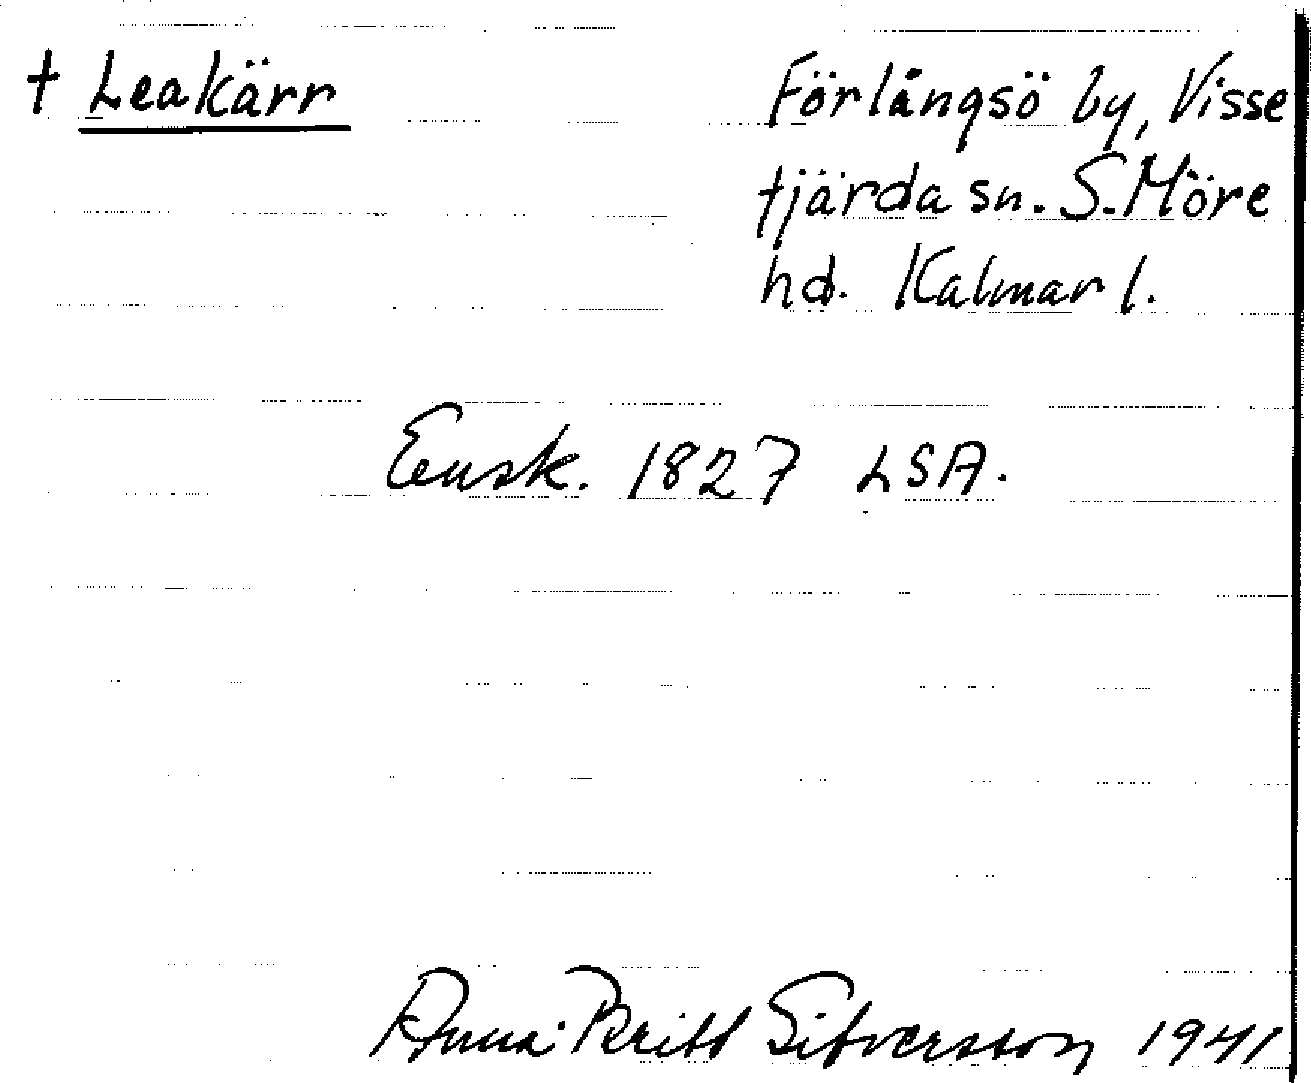 † Leakärr
Förlångsö by, Visse
tjärda sn. S. Möre
hd. Kalmar l.
Ensk. 1827 LSA.
Anna-Britt Sifversson 1941